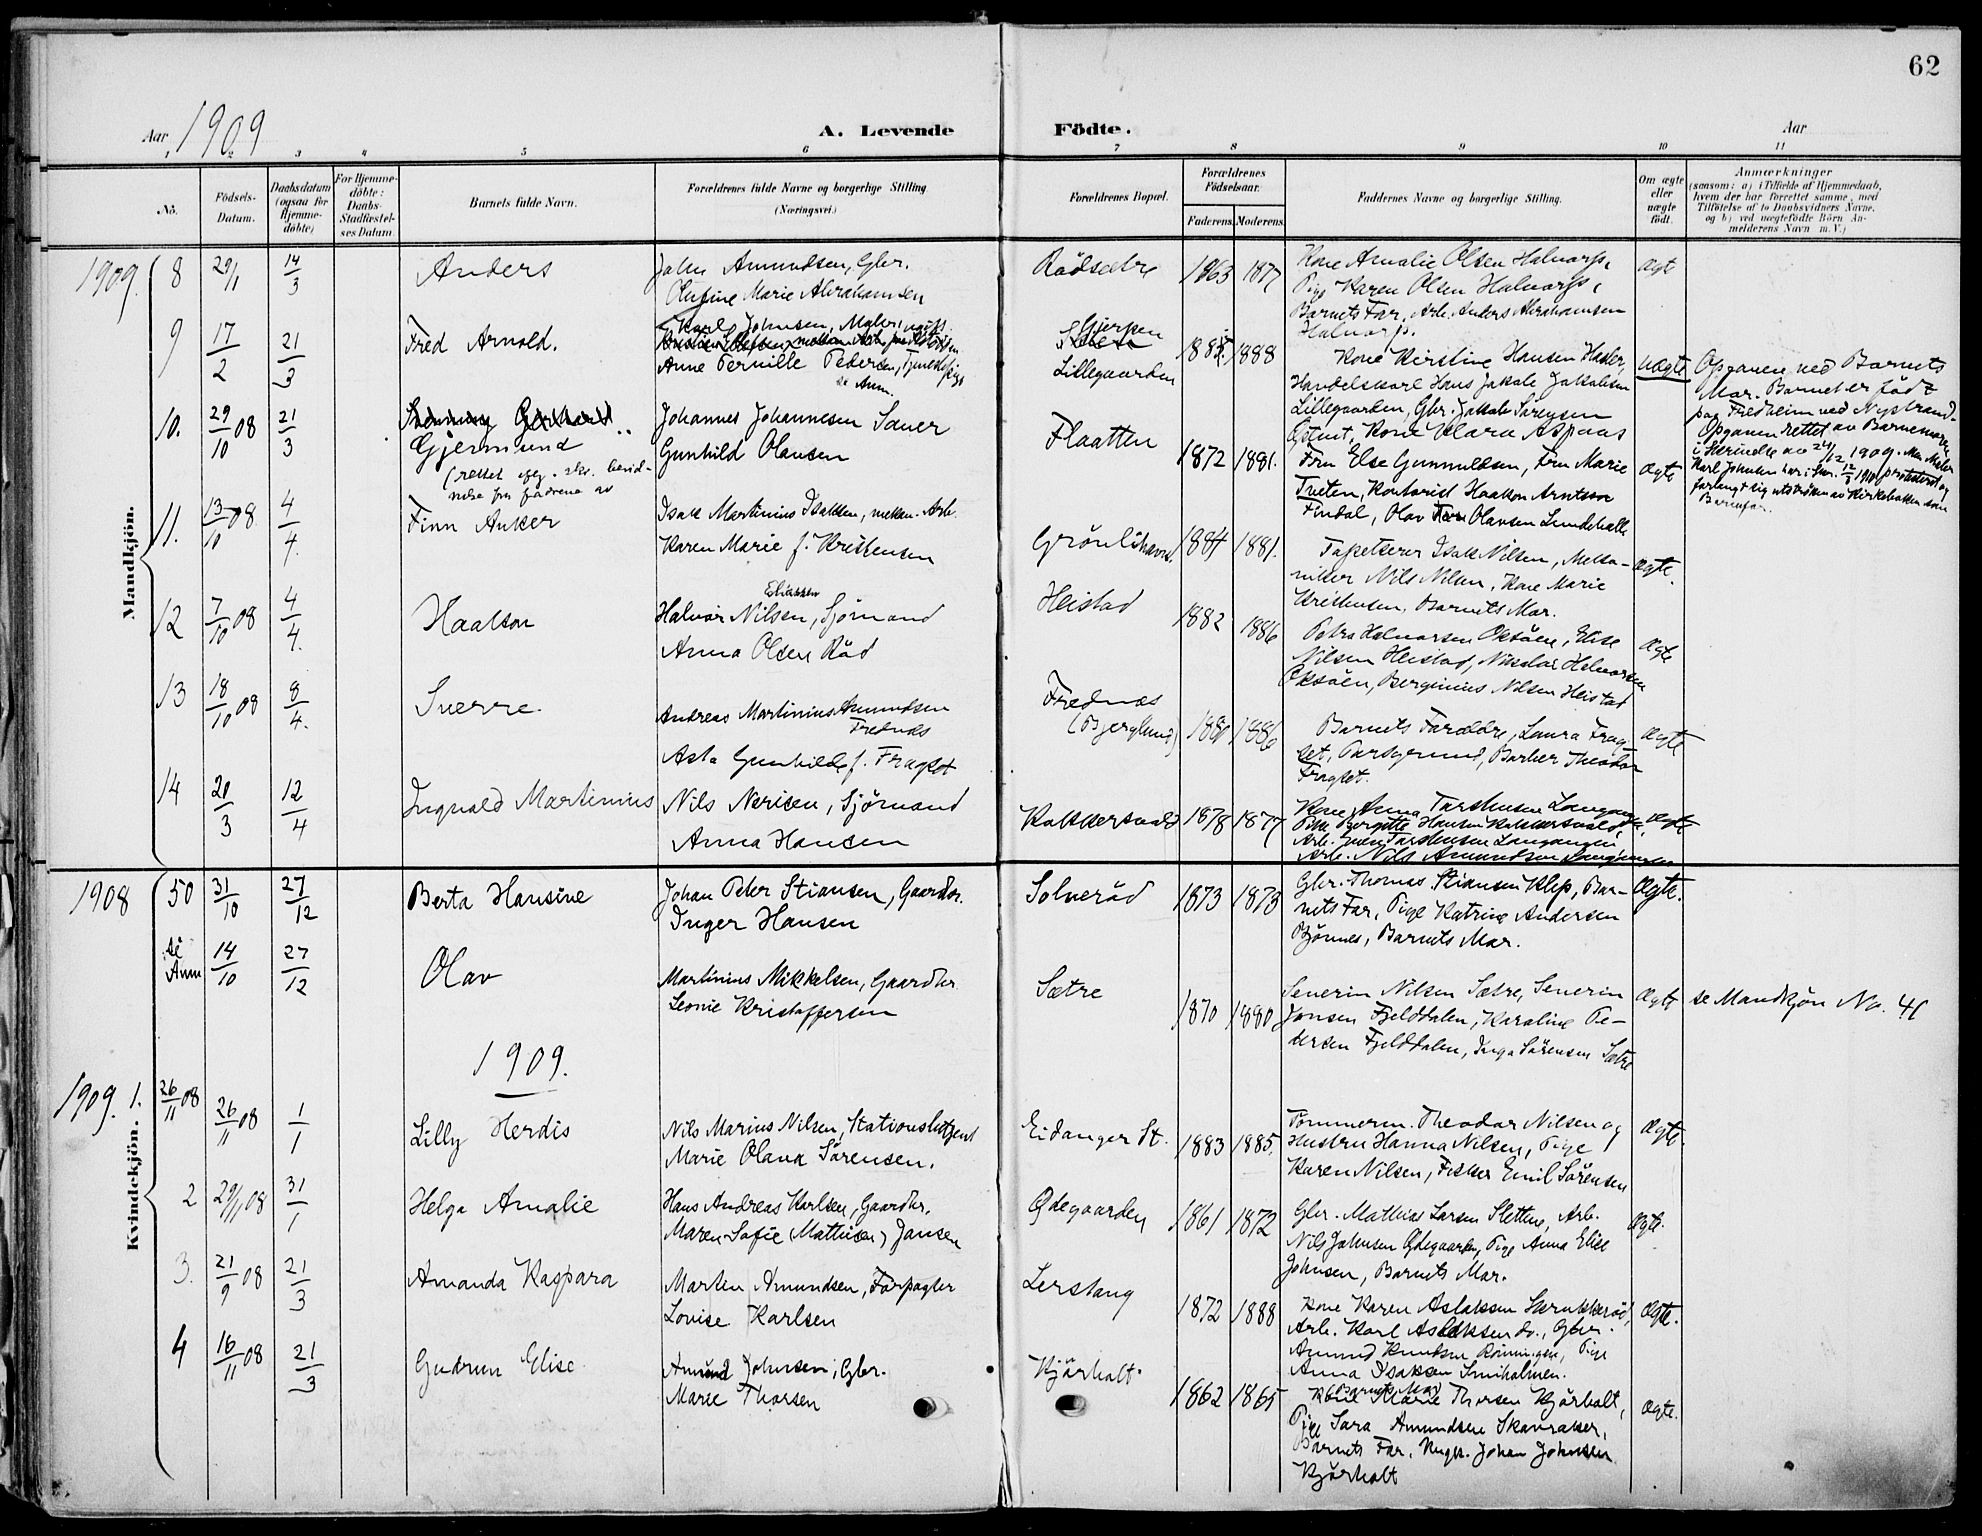 62
Aar 1909
A. Levende Födte.
Aar
1 2 3 4 5 6 7 8 9 10 11
No.
Födsels-Datum.
Daabsdatum (ogsaa for Hjemme-döbte)
For Hjemme-döbte: Daabs-Stadfæstel-ses Datum.
Barnets fulde Navn.
Forældrenes fulde Navne og borgerlige Stilling
(Næringsvei.)
Forældrenes Bopæl.
Forældrenes Födselsaar.
Faderens. Moderens.
Faddernes Navne og borgerlige Stilling.
Om ægte eller uægte födt.
Anmærkninger
(saasom: a) i Tilfælde af Hjemmedaab,
hvem der har forrettet samme, med
Tilföielse af to Daabsvidners Navne,
og b) ved uægtefödte Börn An-
melderens Navn m. V.)
Mandkjön.
1909. 8 29/1 14/3 Anders
John Amundsen, Gbr.
Olufine Marie Abrahamsen
Rödsætre 1863 1877
Kone Amalie Olsen Halvarp,
Pige Karen Olsen Halvarp,
Barnets Far, Arb. Anders Abrahamsen
Halvarp.
ægte
9 17/2 21/3 Fred Arnold.
Karl Johnsen, Maler,
Anne Pernille Pedersen, Tjenestepige
se Anm.
Gjerpen
Lillegaarden 1885 1888
Kone Kirstine Hansen Hasler,
Handelskarl Hans Jakob Jakobsen
Lillegaarden, Gbr. Jakob Sörensen
Kone Klara Aspaas
uægte
Opgaven ved Barnets
Mor. Barnet er födt
paa Fredheim ved Nystrand.
Opgaven rettet av Barnemoren
i Skrivelse av 24/12 1909. Men Maler
Karl Johnsen har i Skr. 12/3 1910 protesteret og
forlangt sig utströken av Kirkeboken som
Barnefar.
10. 29/10 08 21/3 Gjermund
(rettet
Johannes Johannesen Sauer
Gunhild Olausen
Flaatten 1872 1881.
Fru Else Gunnuldsen, Fru Marie
Tveten, Kontorist Haakon Arntsen
Findal, Olav Olavsen Lundehalle
ægte
11. 13/10 08 4/4. Finn Anker
Isak Martinius Isaksen, mekan. Arb.
Karen Marie f. Kristensen
Grönlihavn. 1884 1881.
Tapetserer Isak Nilsen, Meka-
niker Nils Nilsen, Kone Marie
Kristensen, Barnets Mor.
ægte.
12 7/10 08 4/4. Haakon
Eliassen
Halvor Nilsen, Sjömand
Anna Olsen Röd
Heistad 1882 1886
Petra Halvorsen Oksöen, Elise
Nilsen Heistad, Nikolai Halvorsen
Oksöen, Berginius Nilsen Heistad
ægte
13 18/10 08 8/4. Sverre.
Andreas Martinius Amundsen
Frednæs
Asta Gunhilde f. Fragtet
Frednæs
(Bjerglund) 1880 1886
Barnets Forældre, Laura Frag-
tet, Porsgrund, Barber Theodor
Fragtet.
ægte
14 20/3 12/4 Ingvald Martinius
Nils Nerisen, Sjömand
Anna Hansen
Kokkersvold 1878 1877
Kone Anna Torstensen Langangen,
Pike Bergitte Hansen Kokkersvold,
Arb. Torstensen Langangen
Arb. Nils Amundsen Langangen
ægte
1908 50 31/10 27/12 Berta Hansine
Johan Peter Stiansen, Gaardbr.
Inger Hansen
Solveröd 1873 1873
Gbr. Thomas Stiansen Klep, Bar-
nets Far, Pige Katrine Andersen
Björnes, Barnets Mor.
Ægte.
se Anm 14/10 27/12 Olav
Martinius Mikkelsen, Gaardbr
Leonie Kristoffersen
Sætre 1870 1880
Severin Nilsen Sætre, Severin
Jonsen Fjelddalen, Karoline Pe-
dersen Fjelddalen, Inga Sörensen Sætre
Ægte se Mandkjön No. 41
1909.
Kvindekjön.
1909. 1. 26/11 08 26/11 08 1/1 Lilly Herdis
Nils Marius Nilsen, Stationsbetjent
Marie Olava Sörensen.
Eidanger St. 1883 1885.
Tömmerm. Theodor Nilsen og
Hustru Hanna Nilsen, Pige
Karen Nilsen, Fisker Emil Sörensen
Ægte.
2 29/11 08 31/1 Helga Amalie
Hans Andreas Karlsen, Gaardbr.
Maren Sofie (Mathisen) Jansen
Ødegaarden 1861 1872
Gbr. Mathias Larsen Slettene, Arb.
Nils Johnsen Ødegaarden, Pige Anna Elise
Johnsen, Barnets Mor.
Ægte.
3. 21/9 08 21/3 Amanda Kaspara
Marten Amundsen, Forpagter
Lovise Karlsen
Lerstang 1872 1888
Kone Karen Aslaksen Skrukkeröd,
Arb. Karl Aslaksen do., Gbr.
Amund Knutsen Rönningen, Pige
Anna Isaksen Smiholmen.
Ægte.
4 16/11 08 21/3 Gudrun Elise
Amund Johnsen, Gbr.
Marie Thorsen
Kjörholt. 1862 1865
Barnets Mor
Kone Marie Thorsen Kjörholt,
Pige Sara Amundsen Skavraker,
Barnets Far, Ungk. Johan Johnsen
Kjörholt
Ægte.